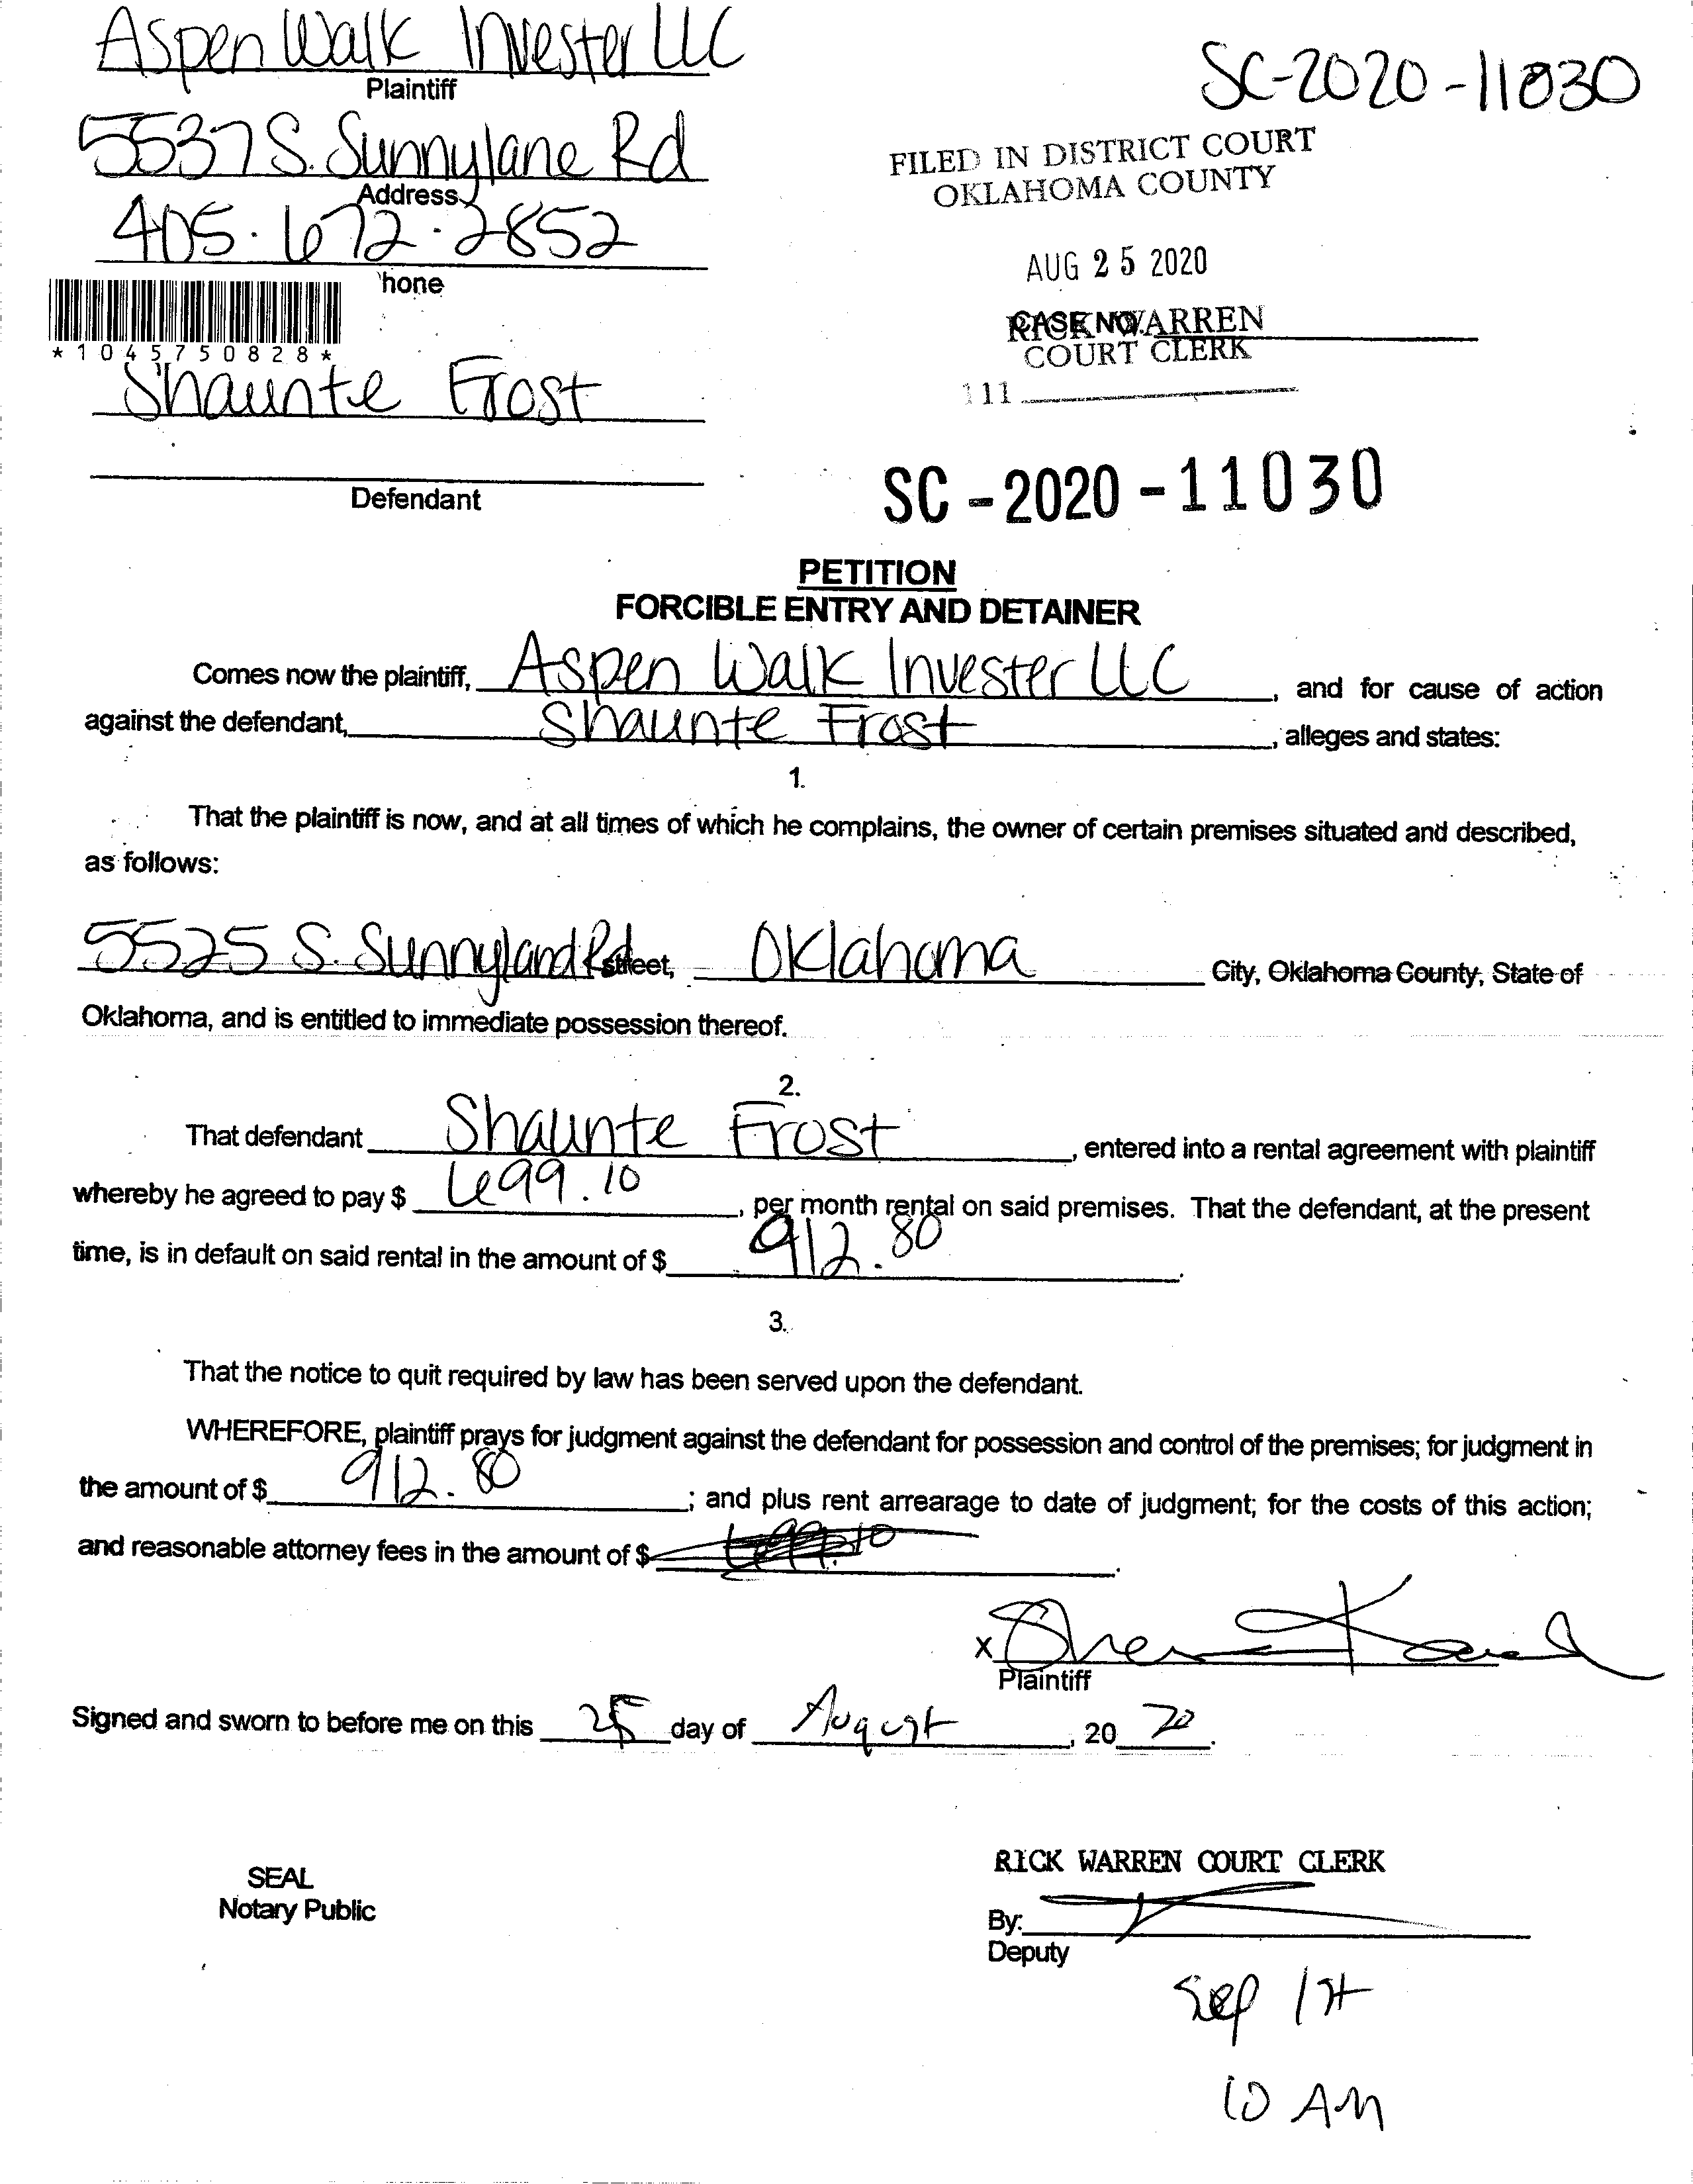 Aspen Walk Invester LLC
Plaintiff
SC-2020-11030
5537 S. Sunnylane Rd
Address
FILED IN DISTRICT COURT
OKLAHOMA COUNTY
405.672.2852
hone
AUG 25 2020
*1045750828*
RICK WARREN
CASE NO.
COURT CLERK
111
Shaunte Frost
Defendant
SC-2020-11030
PETITION
FORCIBLE ENTRY AND DETAINER
Comes now the plaintiff, Aspen Walk Invester LLC, and for cause of action
against the defendant, Shaunte Frost, alleges and states:
1.
That the plaintiff is now, and at all times of which he complains, the owner of certain premises situated and described,
as follows:
5525 S. Sunnyland Rd street, Oklahoma City, Oklahoma County, State of
Oklahoma, and is entitled to immediate possession thereof.
2.
That defendant Shaunte Frost, entered into a rental agreement with plaintiff
whereby he agreed to pay $ 699.10, per month rental on said premises. That the defendant, at the present
time, is in default on said rental in the amount of $ 912.80.
3.
That the notice to quit required by law has been served upon the defendant.
WHEREFORE, plaintiff prays for judgment against the defendant for possession and control of the premises; for judgment in
the amount of $ 912.80; and plus rent arrearage to date of judgment; for the costs of this action;
and reasonable attorney fees in the amount of $
X
Plaintiff
Signed and sworn to before me on this 25 day of August, 20 20.
SEAL
Notary Public
RICK WARREN COURT CLERK
By:
Deputy
Sep 1st
10 AM